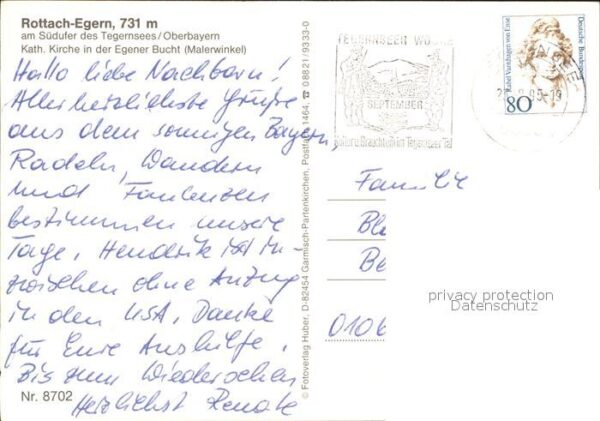 Rottach-Egern, 731 m
am Südufer des Tegernsees/Oberbayern
Kath. Kirche in der Egener Bucht (Malerwinkel)
Hallo liebe Nachbarn!
Allerherzlichste Grüße
aus dem sonnigen Bayern,
Radeln, Wandern
und Faulenzen
bestimmen unsere
Tage, Hendrik ist in-
zwischen ohne Anzug
in den USA, Danke
für Eure Aushilfe.
Bis zum Wiedersehen
Herzlichst Renate
Nr. 8702
© Fotoverlag Huber, D-82454 Garmisch-Partenkirchen, Postfach 1464, 0 8821/9333-0
TEGERNSEER WOCHE
SEPTEMBER
Kultur u. Brauchtum im Tegernseer Tal
Rahel Varnhagen von Ense
Deutsche Bundespost
80
Famili
Bl
Be
0106
privacy protection
Datenschutz